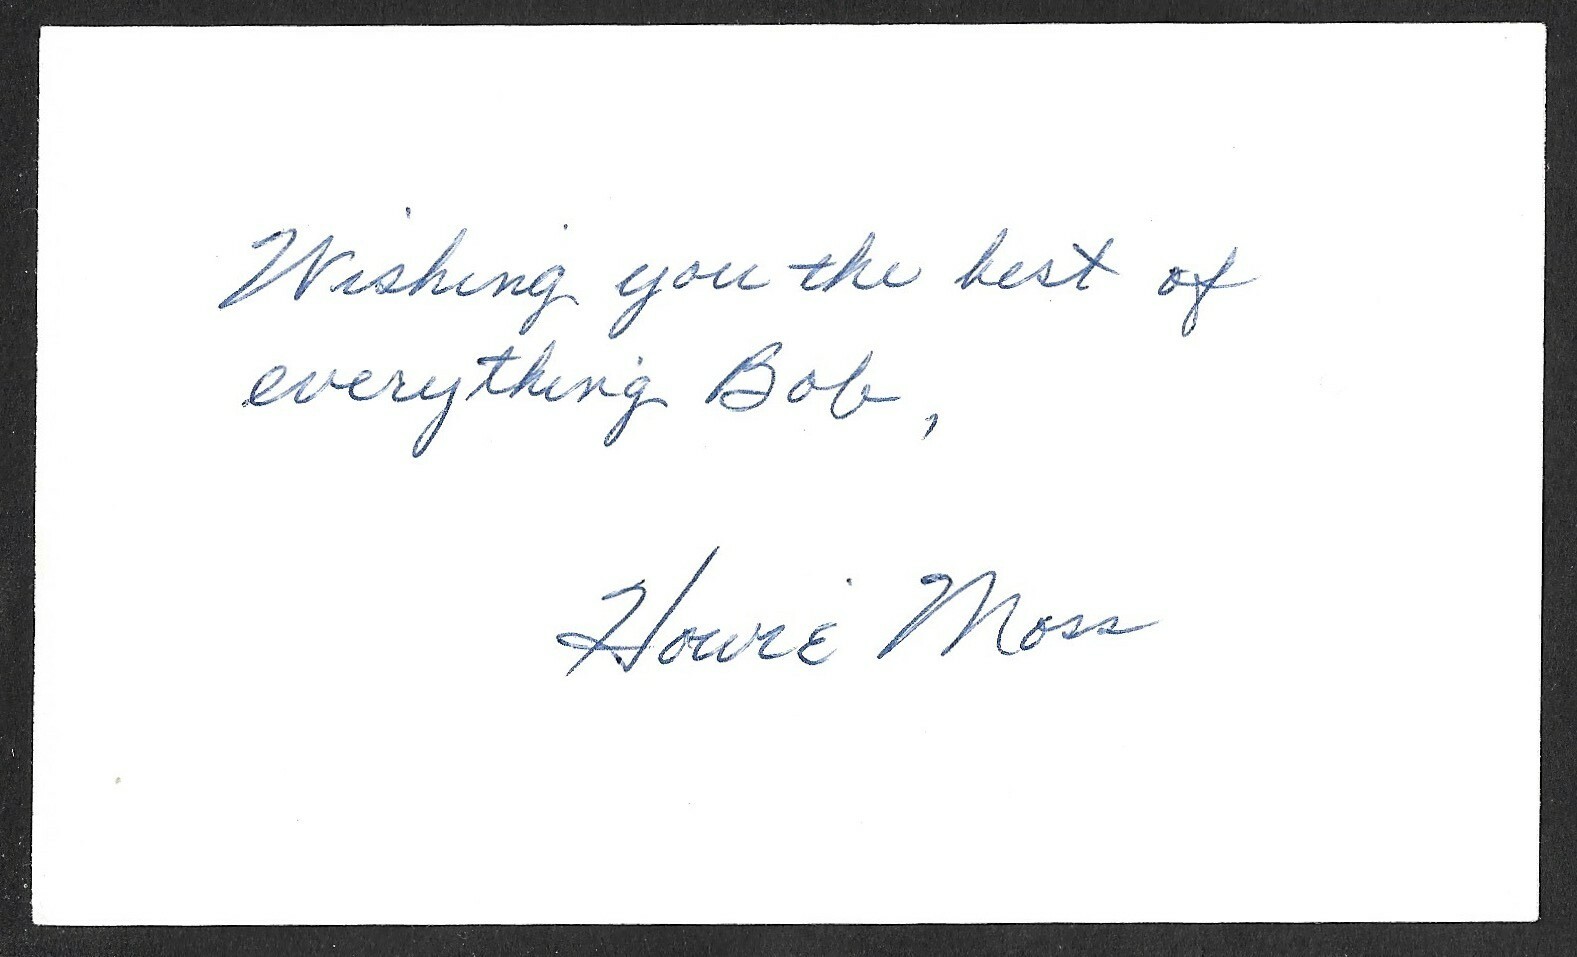 Wishing you the best of
everything Bob,
Howie Moss